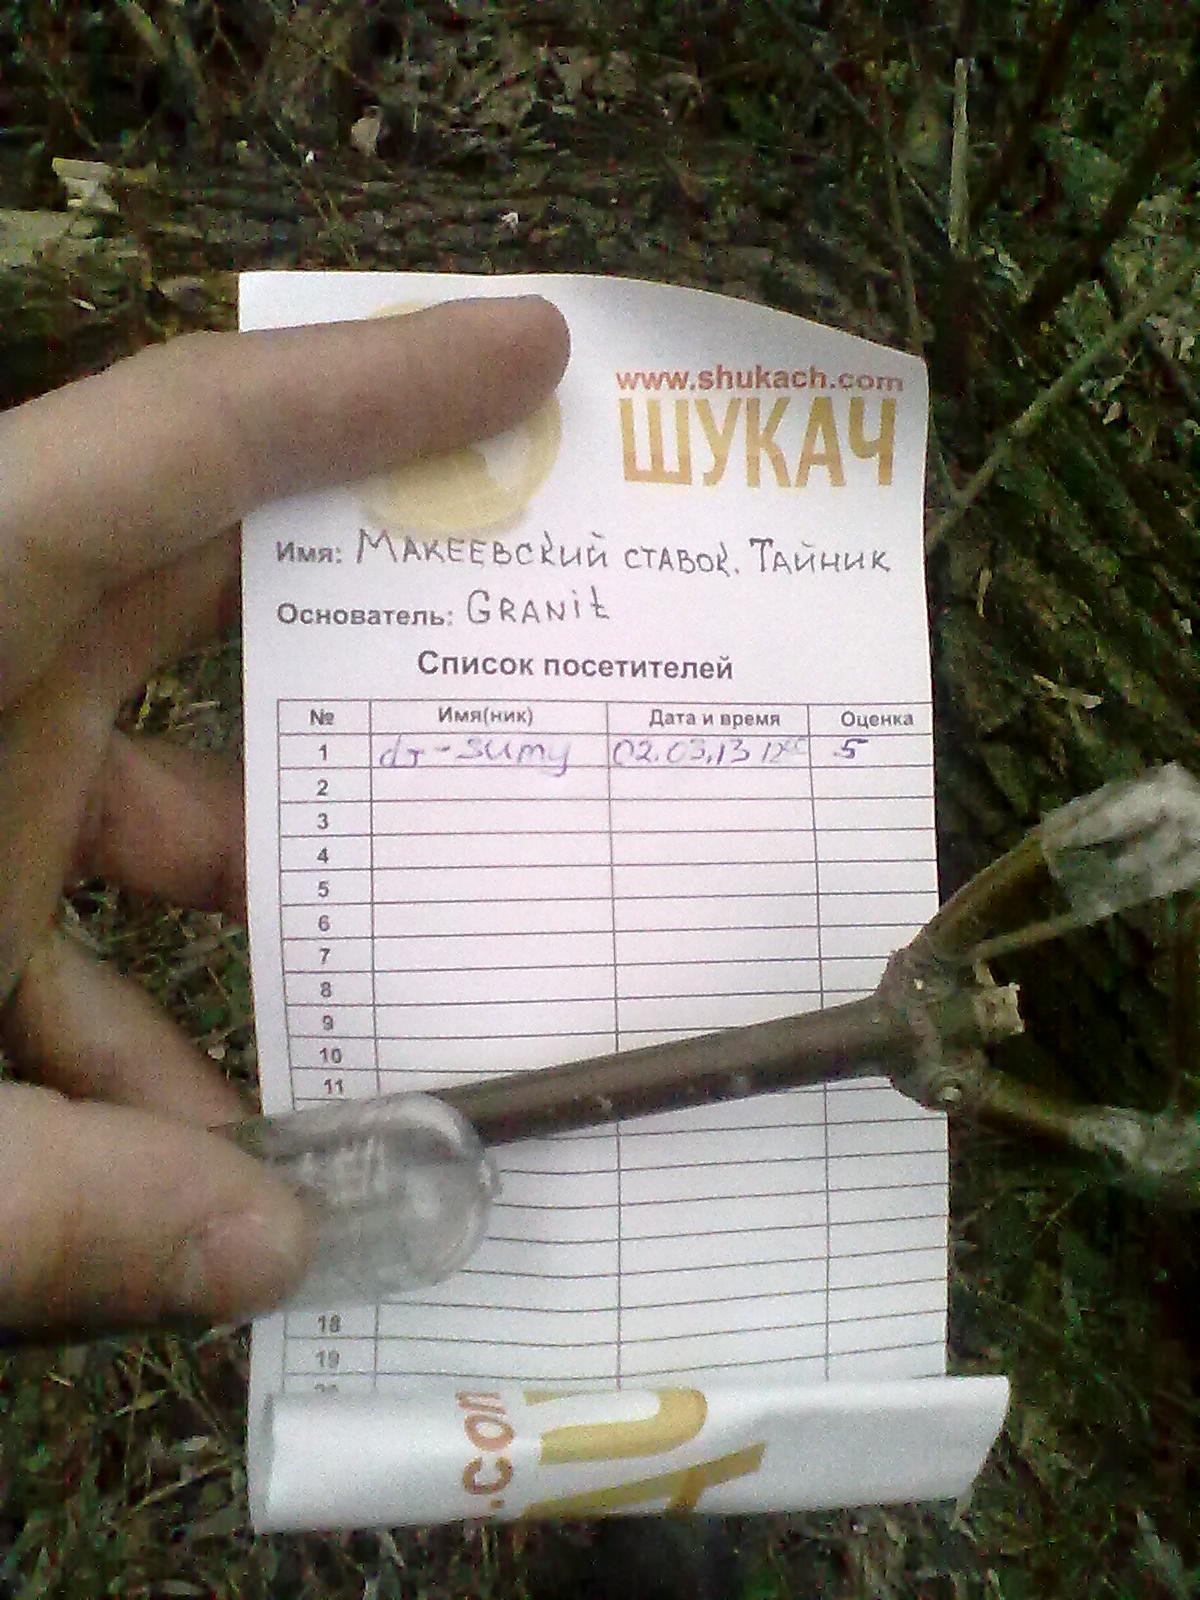 www.shukach.com
ШУКАЧ
Имя: Макеевский ставок. Тайник
Основатель: Granit
Список посетителей
№ Имя(ник) Дата и время Оценка
1 dj-sumy 02.03.13 5
2
3
4
5
6
7
8
9
10
11
18
19
.com